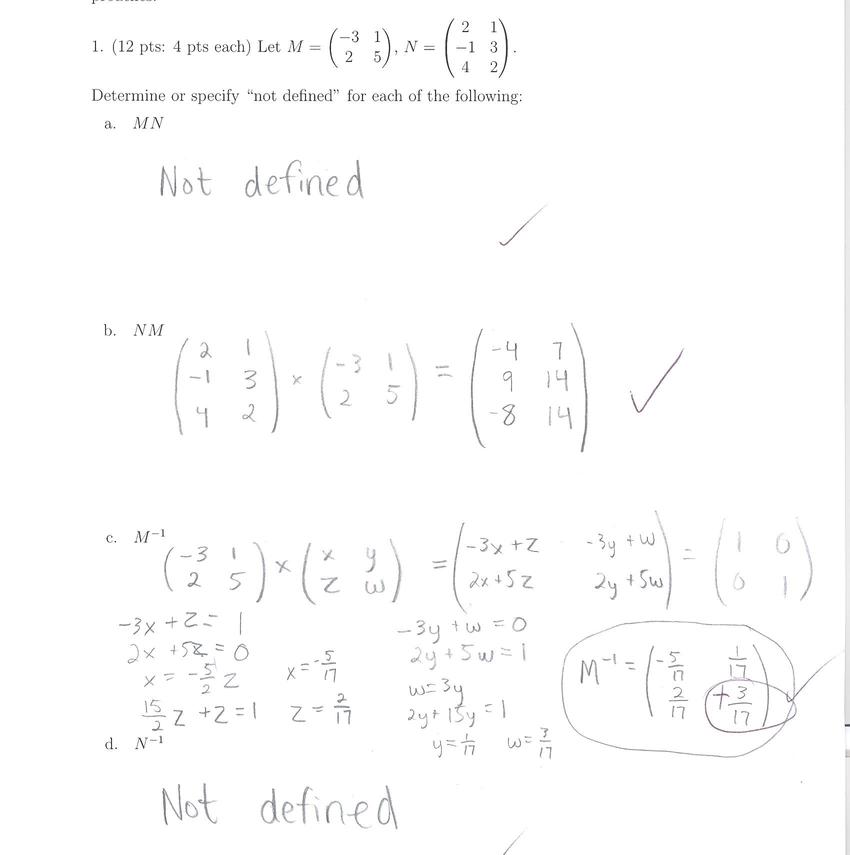 1. (12 pts: 4 pts each) Let M = (−3 1; 2 5), N = (2 1; −1 3; 4 2).
Determine or specify “not defined” for each of the following:
a. MN
Not defined
✓
b. NM
(2 1; -1 3; 4 2) × (-3 1; 2 5) = (-4 7; 9 14; -8 14) ✓
c. M⁻¹
(-3 1; 2 5) × (x y; z w) = (-3x+z -3y+w; 2x+5z 2y+5w) = (1 0; 0 1)
-3x+z=1
2x+5z=0
x=-5/2 z
x=-5/17
15/2 z+z=1
z=2/17
-3y+w=0
2y+5w=1
w=3y
2y+15y=1
y=1/17 w=3/17
M⁻¹=(-5/17 1/17; 2/17 +3/17) ✓
d. N⁻¹
Not defined